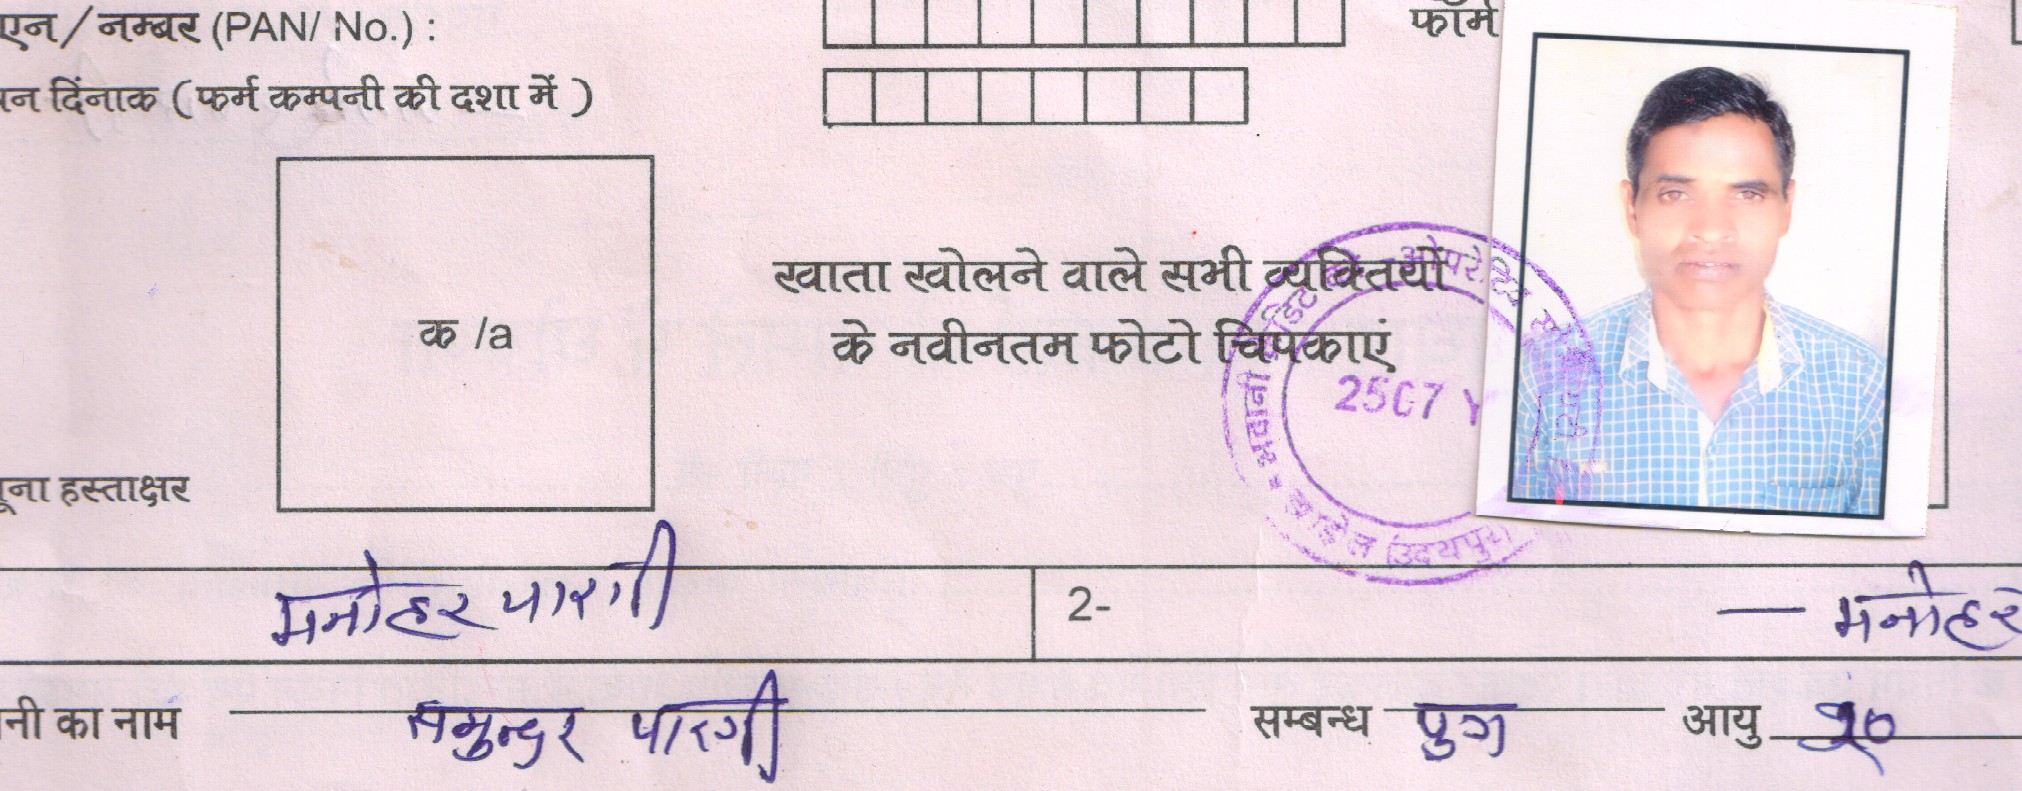 एन/नम्बर (PAN/ No.) :
फॉर्म
दिंनाक (फर्म कम्पनी की दशा में )
क /a
खाता खोलने वाले सभी व्यक्तियों
के नवीनतम फोटो चिपकाएं
क्रेडिट को-ओपरेटिव
भवानी
2507
(उदयपुर)
हस्ताक्षर
मनोहर पारगी
2-
— मनोहर
नी का नाम समुन्दर पारगी सम्बन्ध पुत्र आयु